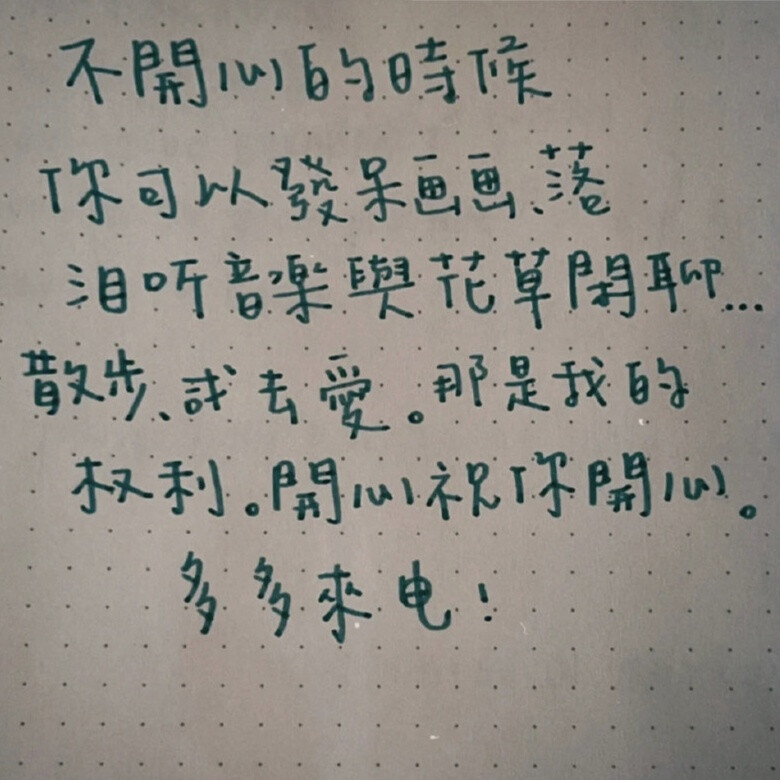 不開心的時候
你可以發呆画画、落
泪听音樂與花草閑聊...
散步、或去愛。那是我的
权利。開心祝你開心。
多多來电!